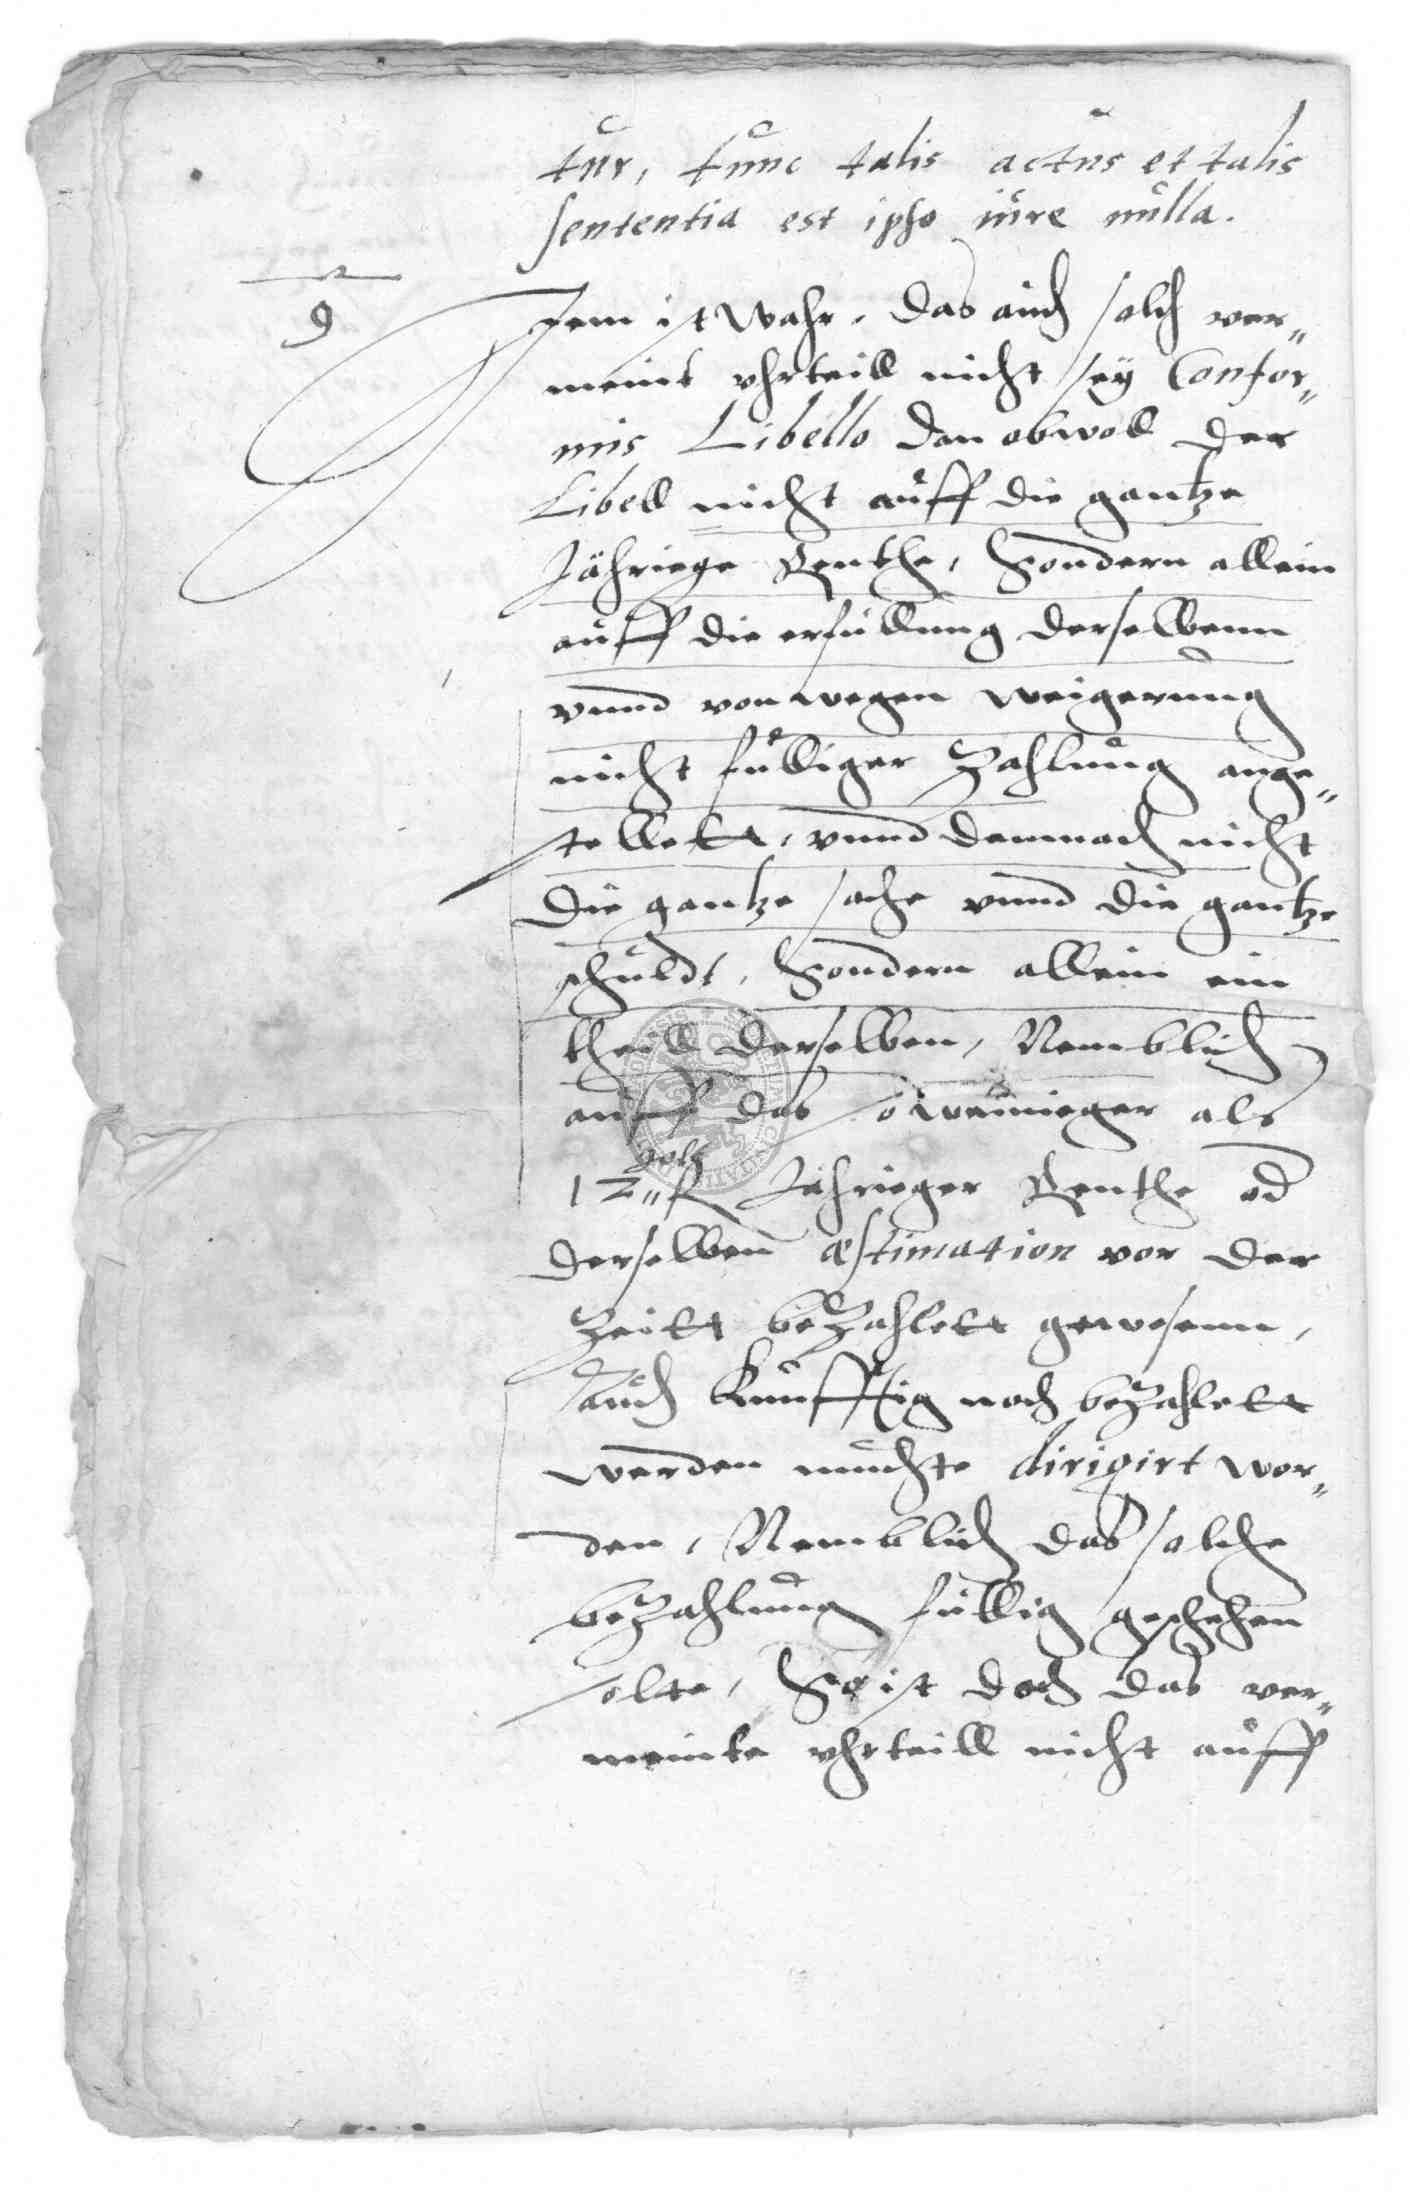 tur, tunc talis actus et talis
sententia est ipso iure nulla.
9
Item ist wahr, das auch solch ver„
meint vhrteill nicht sey Confor„
mis Libello dan obwoll der
Libell nicht auff die gantze
Jähriege Renthe, Sondern allein
auff die erfullung derselbenn
vnnd von wegen weigerung
nicht fulliger Zahlung ange„
stellett, vnnd demnach nicht
die gantze sache vnnd die gantze
schuldt, Sondern allein ein
theill derselben, Nemblich
auff das so wenieger als
12„ Jahrieger Renthe od
golt
derselben æstimation vor der
Zeitt bezahlett gewesenn,
auch kunfftig noch bezahlett
werden muchte dirigirt wor„
den, Nemblich das solche
bezahlung fullig geschehen
solte, So ist doch das ver„
meinte vhrteill nicht auff